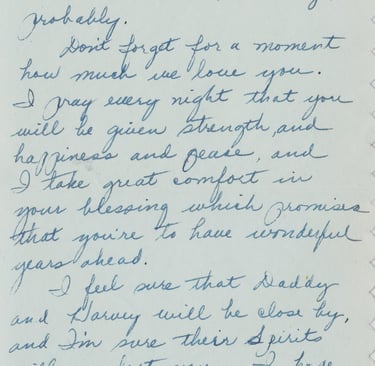 probably.
Don't forget for a moment
how much we love you.
I pray every night that you
will be given strength, and
happiness and peace, and
I take great comfort in
your blessing which promises
that you're to have wonderful
years ahead.
I feel sure that Daddy
and Harvey will be close by,
and I'm sure their Spirits